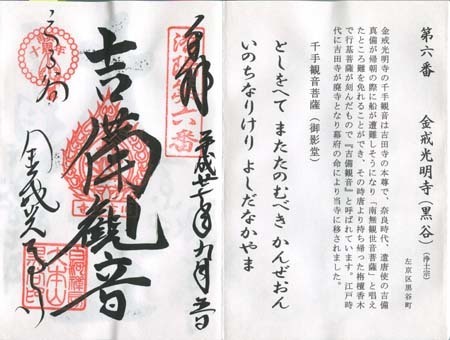 第六番 金戒光明寺（黒谷）（浄土宗）
左京区黒谷町
金戒光明寺の千手観音は吉田寺の本尊で、奈良時代、遣唐使の吉備
真備が帰朝の際に船が遭難しそうになり「南無観世音菩薩」と唱え
たところ難を免れることができ、その時唐より持ち帰った栴檀香木
で行基菩薩が刻んだもので『吉備観音』と呼ばれています。江戸時
代に吉田寺が廃寺となり幕府の命により当寺に移されました。
千手観音菩薩（御影堂）
としをへて またたのむべき かんぜおん
いのちなりけり よしだなかやま
奉拝
平成廿一年九月一日
洛陽第六番
吉備観音
くろ谷
金戒光明寺